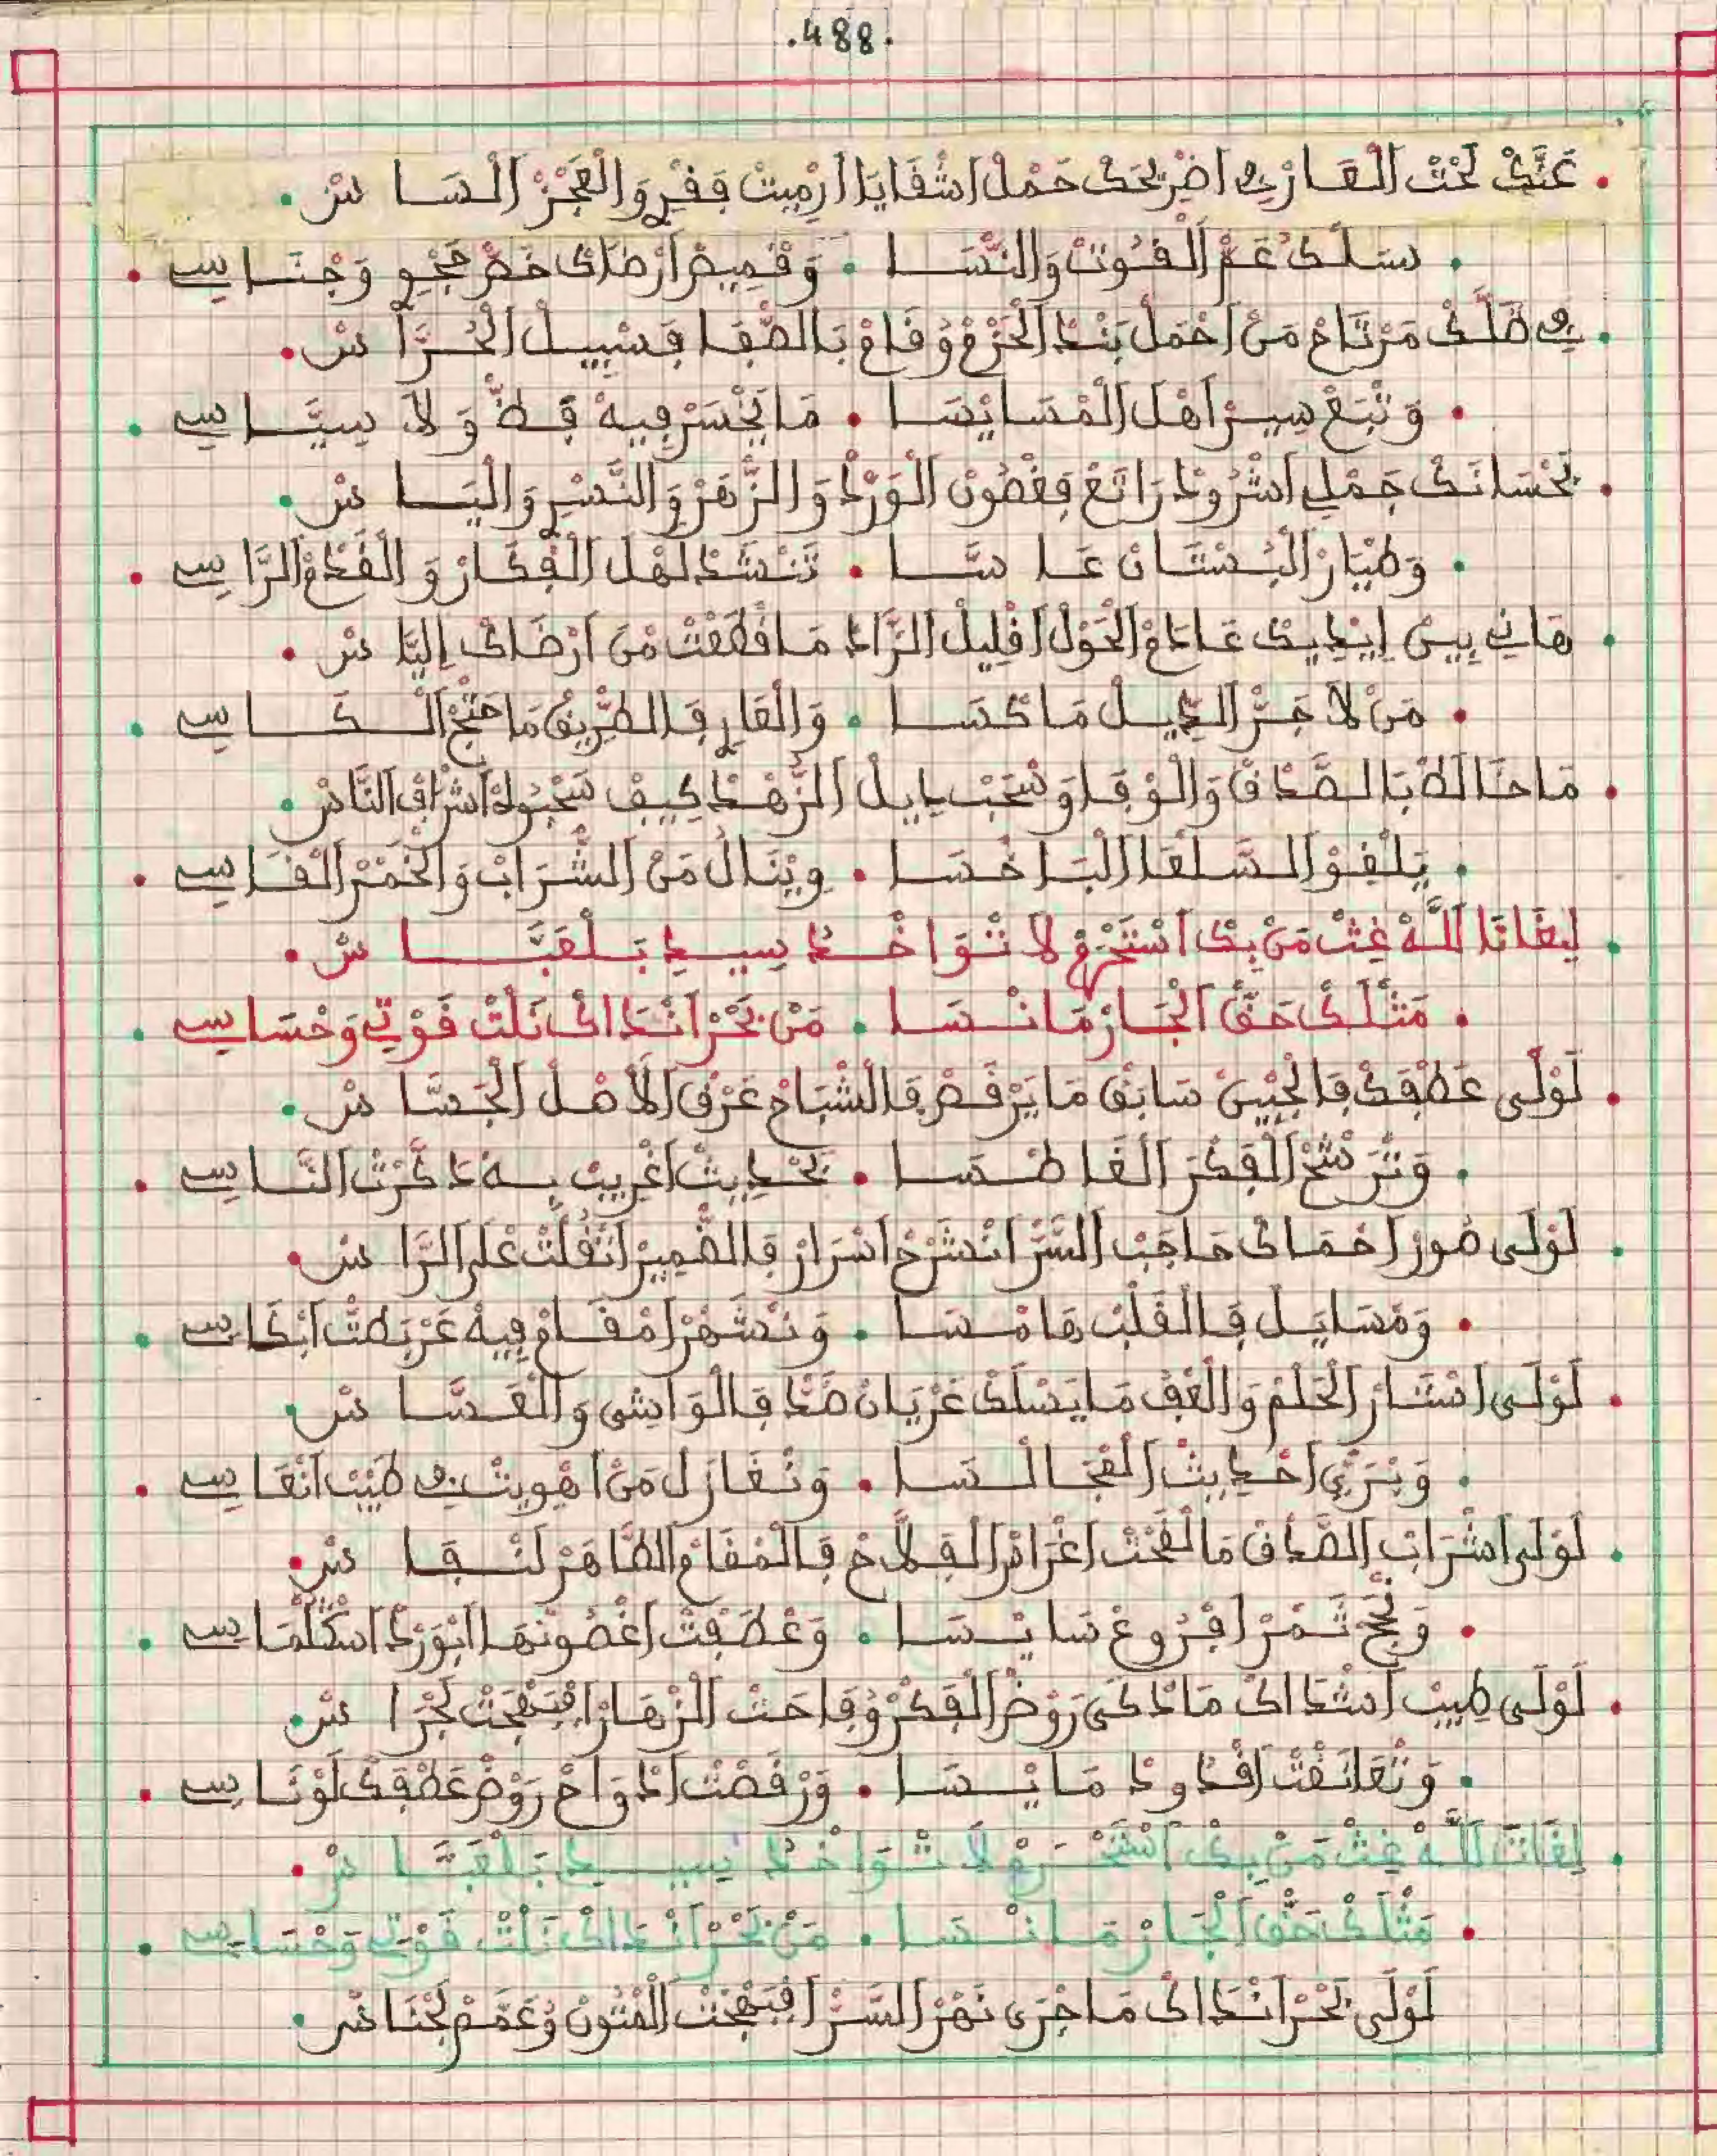 .488.
عَتَّكْ تَحْتْ الْعَارْ في اضْرِيحَكْ حَمْلْ اشْقَايَا ارْمِيتْ فقْرِ وَالْعَجْزْ الْسَا سْ
سَلَّكْ عَمّْ الْقُوتْ وَالنّْسَا . وَقْمِيصْ ارْضَاكْ خَضْرْ وَجْنَاسِي
في ضَلَّكْ مَرْتَاحْ مَنْ احْمَلْ بَنْدْ الْحَزْمْ وُقَامْ بَالصّْفَا فسْبِيلْ الْحُرَّا سْ
وَتْبَعْ سِيرْ اهْلْ الْمْسَايْسَا . مَا يَخْسَرْ فِيهْ قَطّْ وَلَا سِيَّاسِي
بَحْسَانَكْ جَمْلِي اشْرُودْ رَاتَعْ فغْصُونْ الْوَرْدْ وَالزّْهَرْ وَالنَّسْرِ وَالْيَا سْ
وَطْيَارْ الْبُسْتَانْ عَا سَّا . تَنْشَدْ لَهْلْ الْفْكَارْ وَالْقَدْحْ الرَّاسِي
هَانِي بِينْ ايْدِيكْ عَادَمْ الْحَوْلْ اقْلِيلْ الزَّادْ مَا قْطَعْتْ مْنْ ارْضَاكْ اليَّا سْ
مَنْ لَا جَرّْ الدِّيلْ مَا كْسَا . وَالْعَارِ فَالطّْرِيقْ مَا حْتَجْ الْكَاسِي
مَا خَالَطْ بَالصّْدَاقْ وَالْوْفَا وَسْحَبْ دِيلْ الزُّهْدْ كِيفْ سَحْبُوهْ اشْرَافْ النَّاسْ
يَلْقُوْ السَّلْعَا الْبَاخْسَا . وِينَالْ مَنْ الشّْرَابْ وَالْخَمْرْ الْقَاسِي
لِيغَاتَا لَلَّهْ غِثْ مَنْ بِكْ اسْتَحْرَمْ لَا تْوَاخْدْ سِيدِ بَلْعَبَّا سْ
مَثْلَكْ حَقّْ الْجَارْ مَا نْسَا . مَنْ بَحْرْ انْدَاكْ نَلْتْ قَوْتِي وَحْسَاسِي
لَوْلَى عَطْفَكْ فَالْجْبِينْ سَابَقْ مَا يَرْقَصْ فَالشْبَاحْ عَرْقْ الْأَهْلْ الْجَسَّا سْ
وَتْرَشَّحْ الْفْكَرْ الْغَاطْسَا . بَحْدِيثْ اغْرِيبْ بِهْ دَكَّرْتْ النَّاسِي
لَوْلَى صُورْ احْمَاكْ حَاجَبْ السَّرّْ انْشَرْحْ اسْرَارْ فَالضّْمِيرْ اتْقَلْتْ عْلَى الرَّا سْ
وَمْسَايَلْ فَالْقَلْبْ هَامْسَا . وَنْشَهْرْ امْقَامْ فِيهْ عَرْبَطْتْ ابْكَاسِي
لَوْلَى اسْتَارْ الْحَلْمْ وَالْعَفْ مَا يَسْلَكْ عَرْيَانْ ضَدّْ فَالْوَاشِي وَالْعَسَّا سْ
وَيْرَوِّي احْدِيثْ الْمْجَالْسَا . وَنْغَازَلْ مَنْ اهْوِيتْ في طَيْبْ انْعَاسِي
لَوْلَى اشْرَابْ الصّْدَاقْ مَا لَقْحَتْ اغْرَاسْ الْفْلَاحْ فَالْمْقَامْ الطَّاهَرْ لَنْفَا سْ
ثَمْرْ افْرُوعْ سَايْسَا . وَعْطَفْتْ اغْصُونْهَا ابْوَرْدْ
لَوْلَى طِيبْ اشْدَاكْ مَا دْكَى رَوْضْ الْفْكَرْ وُفَاحَتْ الْزْهَارْ افْبَهْجَتْ لَجْرَا سْ
وَتْعَانْقَتْ اقْدُودْ مَايْسَا . وَرْقَصْتْ ادْوَاحْ رَوْضْ عَطْفَكْ لَوْنَاسِي
لِغَاتَا لَلَّهْ غِثْ مَنْ بِكْ اسْتَحْرَمْ لَا تْوَاخْدْ سِيدِ بَلْعَبَّا سْ
مَثْلَكْ حَقّْ الْجَارْ مَا نْسَا . مَنْ بَحْرْ انْدَاكْ نَلْتْ قَوْتِي وَحْسَاسِي
لَوْلَى بَحْرْ انْدَاكْ مَا جْرَى نَهْرْ السَّرّْ افْبَهْجَتْ الْمْتُونْ وُعَمَّمْ لَجْنَاسْ